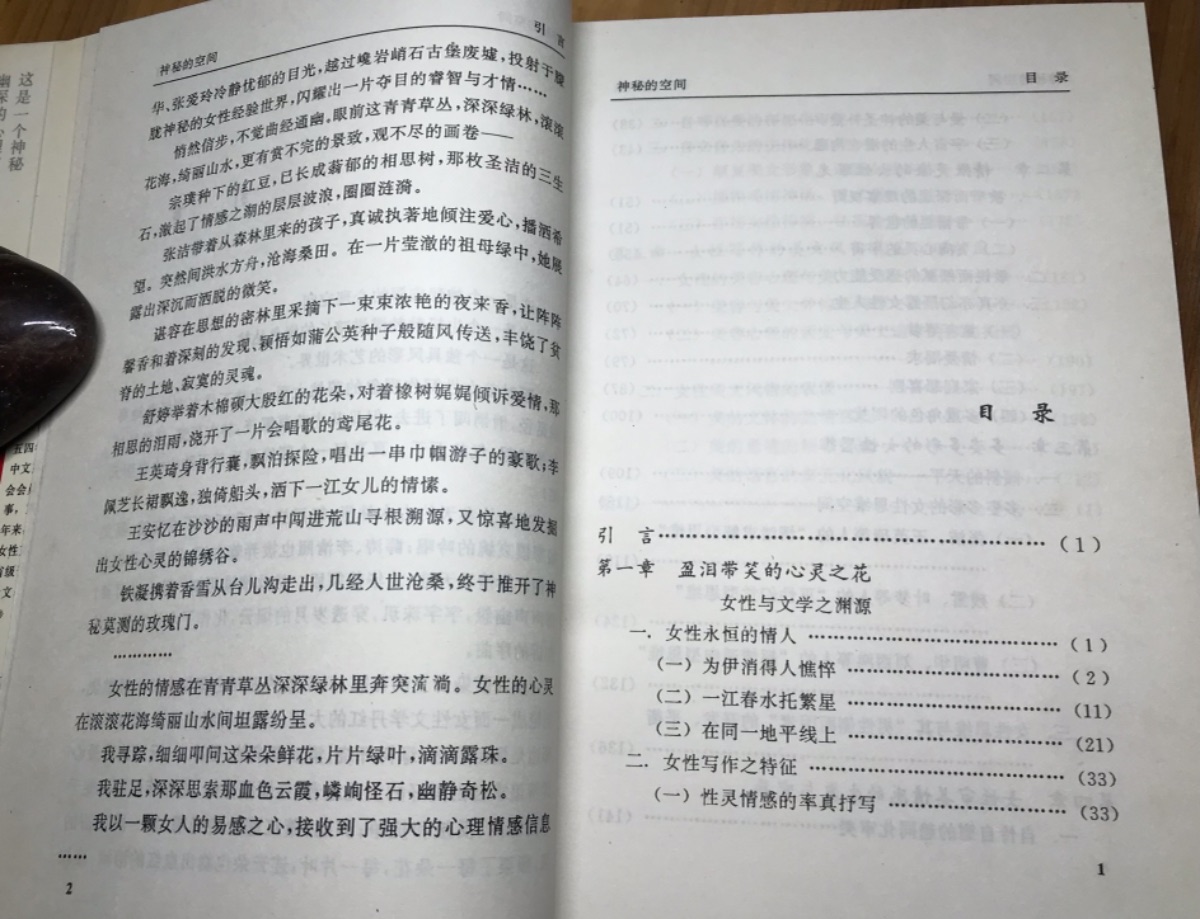 这是一个神秘
五四
中文
会会
事,
年来
女性
省级
文
神秘的空间
引 言
华、张爱玲冷静忧郁的目光,越过巉岩峭石古堡废墟,投射于朦
胧神秘的女性经验世界,闪耀出一片夺目的睿智与才情……
悄然信步,不觉曲经通幽。眼前这青青草丛,深深绿林,滚滚
花海,绮丽山水,更有赏不完的景致,观不尽的画卷——
宗璞种下的红豆,已长成蓊郁的相思树,那枚圣洁的三生
石,激起了情感之湖的层层波浪,圈圈涟漪。
张洁带着从森林里来的孩子,真诚执著地倾注爱心,播洒希
望。突然间洪水方舟,沧海桑田。在一片莹澈的祖母绿中,她展
露出深沉而洒脱的微笑。
谌容在思想的密林里采摘下一束束浓艳的夜来香,让阵阵
馨香和着深刻的发现、颖悟如蒲公英种子般随风传送,丰饶了贫
脊的土地、寂寞的灵魂。
舒婷举着木棉硕大殷红的花朵,对着橡树娓娓倾诉爱情,那
相思的泪雨,浇开了一片会唱歌的鸢尾花。
王英琦身背行囊,飘泊探险,唱出一串巾帼游子的豪歌;李
佩芝长裙飘逸,独倚船头,洒下一江女儿的情愫。
王安忆在沙沙的雨声中闯进荒山寻根溯源,又惊喜地发掘
出女性心灵的锦绣谷。
铁凝携着香雪从台儿沟走出,几经人世沧桑,终于推开了神
秘莫测的玫瑰门。
…………
女性的情感在青青草丛深深绿林里奔突流淌。女性的心灵
在滚滚花海绮丽山水间坦露纷呈。
我寻踪,细细叩问这朵朵鲜花,片片绿叶,滴滴露珠。
我驻足,深深思索那血色云霞,嶙峋怪石,幽静奇松。
我以一颗女人的易感之心,接收到了强大的心理情感信息
……
2
神秘的空间
目 录
目 录
引 言……………………………………………(1)
第一章 盈泪带笑的心灵之花
女性与文学之渊源
一. 女性永恒的情人 ……………………………(1)
(一)为伊消得人憔悴 …………………………(2)
(二)一江春水托繁星 …………………………(11)
(三)在同一地平线上 …………………………(21)
二. 女性写作之特征 ……………………………(33)
(一)性灵情感的率真抒写 ……………………(33)
1